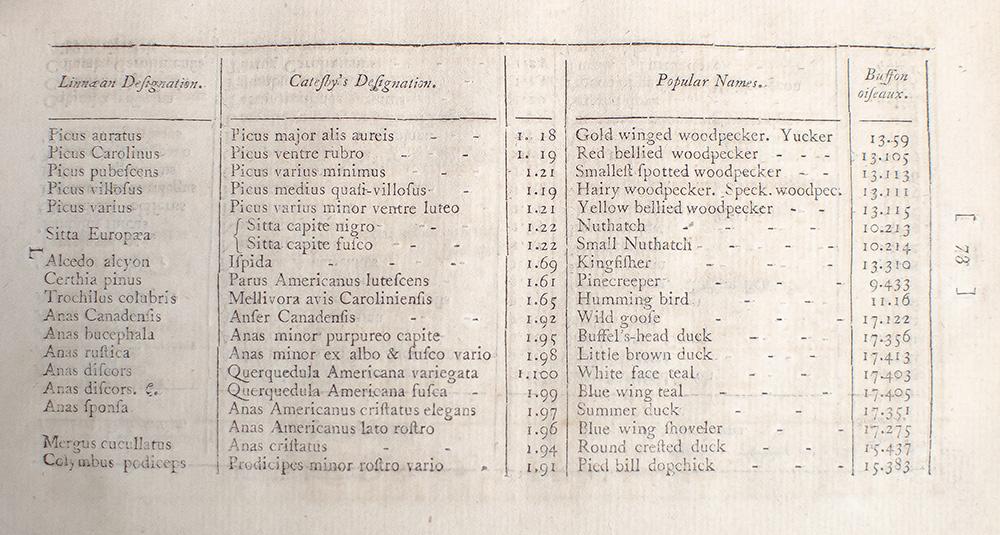 Linnæan Deſignation. Cateſby's Deſignation. Popular Names. Buffon oiſeaux.
Picus auratus Picus major alis aureis - - 1. 18 Gold winged woodpecker. Yucker 13.59
Picus Carolinus Picus ventre rubro - - 1. 19 Red bellied woodpecker - - - 13.105
Picus pubeſcens Picus varius minimus - 1.21 Smalleſt ſpotted woodpecker - - 13.113
Picus villoſus Picus medius quaſi-villoſus - 1.19 Hairy woodpecker. Speck. woodpec. 13.111
Picus varius Picus varius minor ventre luteo 1.21 Yellow bellied woodpecker - - 13.115
Sitta Europæa { Sitta capite nigro - - 1.22 Nuthatch - - - - 10.213
{ Sitta capite fuſco - - 1.22 Small Nuthatch - - - - 10.214
Alcedo alcyon Iſpida - - - 1.69 Kingfiſher - - - - 13.310
Certhia pinus Parus Americanus luteſcens 1.61 Pinecreeper - - - - 9.433
Trochilus colubris Mellivora avis Carolinienſis 1.65 Humming bird - - - - 11.16
Anas Canadenſis Anſer Canadenſis - - 1.92 Wild gooſe - - - - 17.122
Anas bucephala Anas minor purpureo capite - 1.95 Buffel's-head duck - - - 17.356
Anas ruſtica Anas minor ex albo & fuſco vario 1.98 Little brown duck - - - 17.413
Anas diſcors Querquedula Americana variegata 1.100 White face teal - - - 17.403
Anas diſcors. ς. Querquedula Americana fuſca - 1.99 Blue wing teal - - - 17.405
Anas ſponſa Anas Americanus criſtatus elegans 1.97 Summer duck - - - 17.351
Anas Americanus lato roſtro 1.96 Blue wing ſhoveler - - - 17.275
Mergus cucullatus Anas criſtatus - - 1.94 Round creſted duck - - - 15.437
Columbus podiceps Prodicipes minor roſtro vario - 1.91 Pied bill dopchick - - - 15.383
[ 78 ]
L